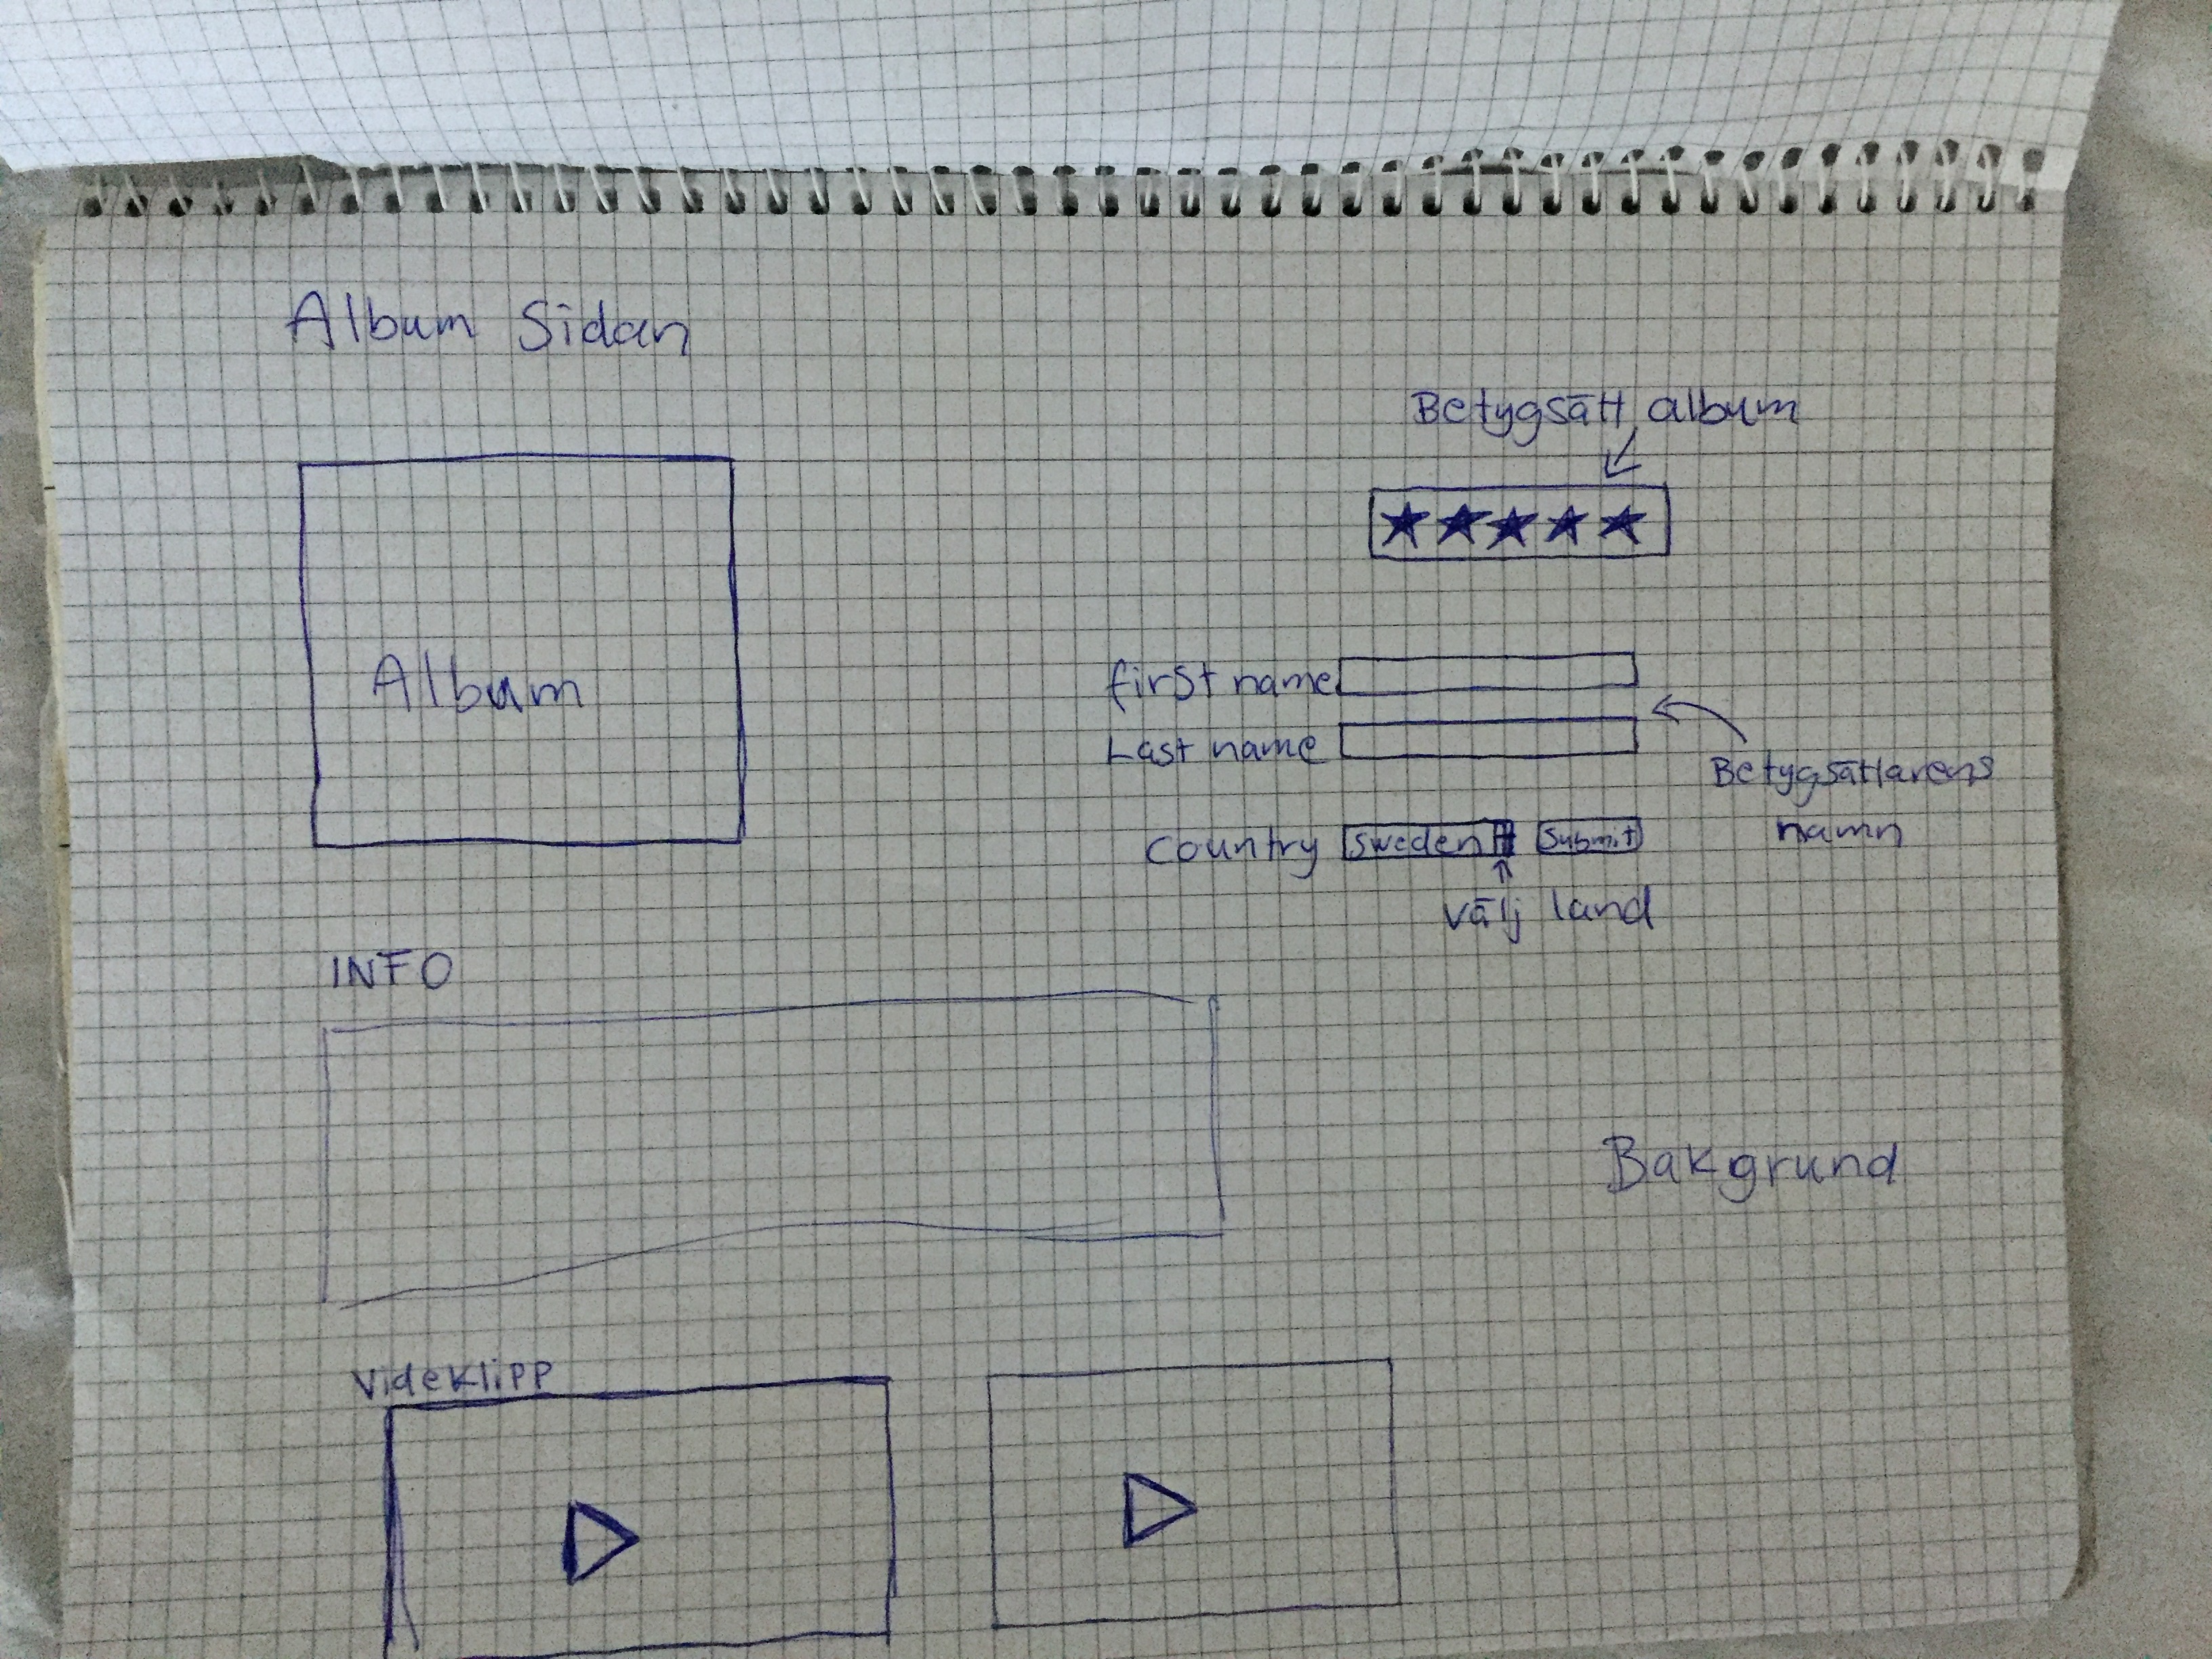 Album Sidan
Betygsätt album
Album
first name
Last name
Betygsättarens
namn
Country Sweden Submit
välj land
INFO
Bakgrund
Videklipp